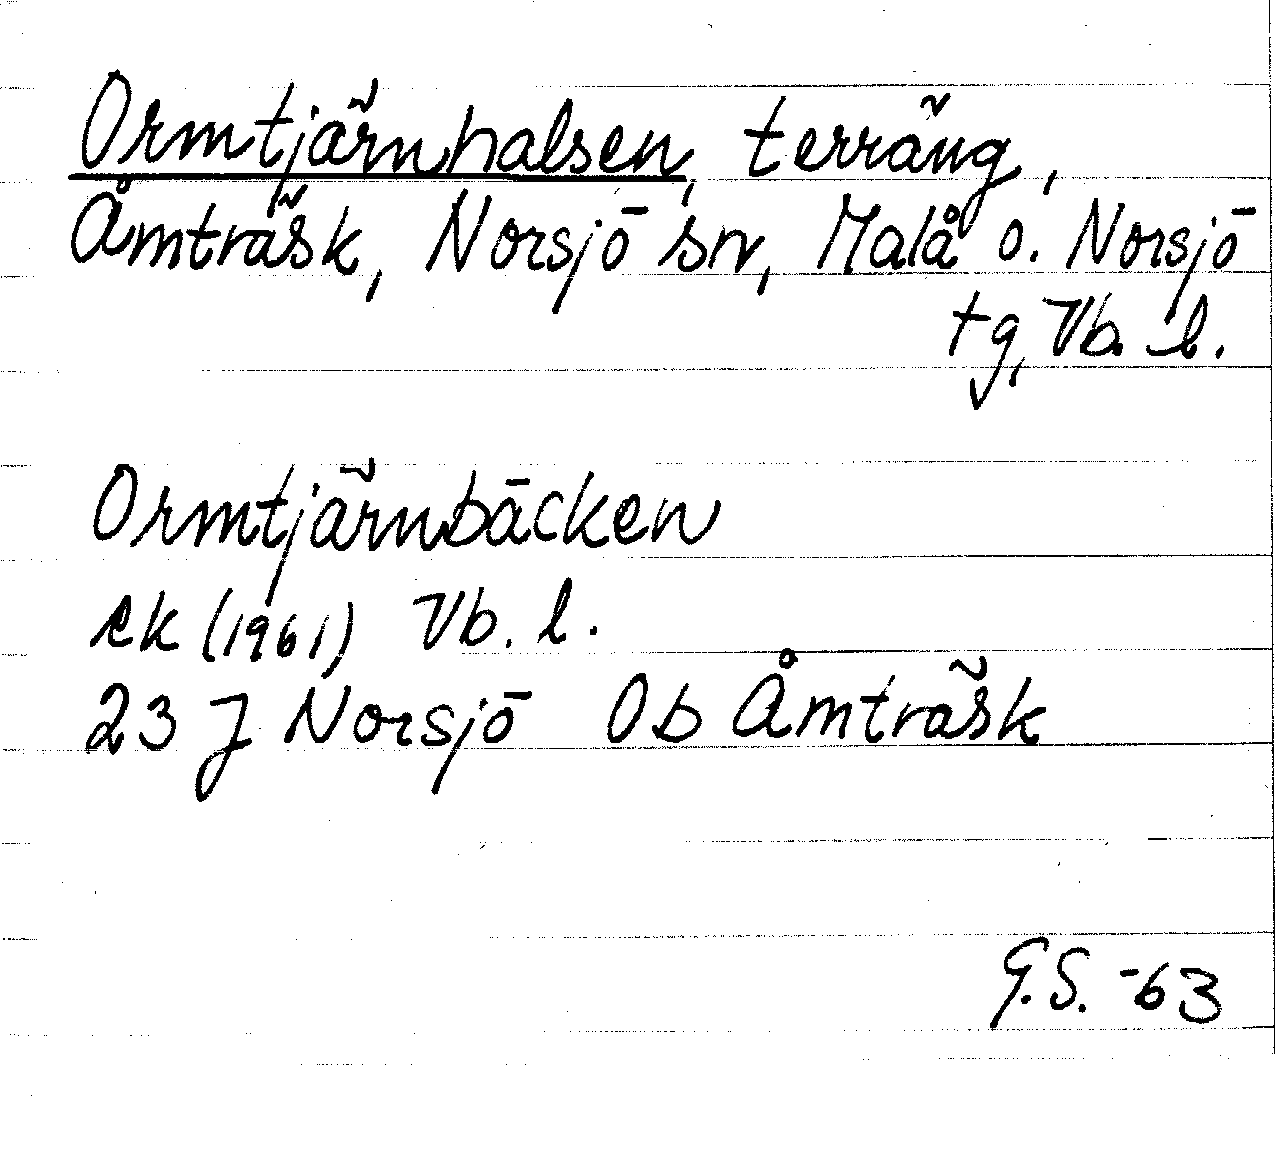 Ormtjärnhalsen, terräng,
Åmträsk, Norsjö sn, Malå o. Norsjö
tg, Vb. l.
Ormtjärnbäcken
ek (1961) Vb. l.
23 J Norsjö Ob Åmträsk
G.S. -63